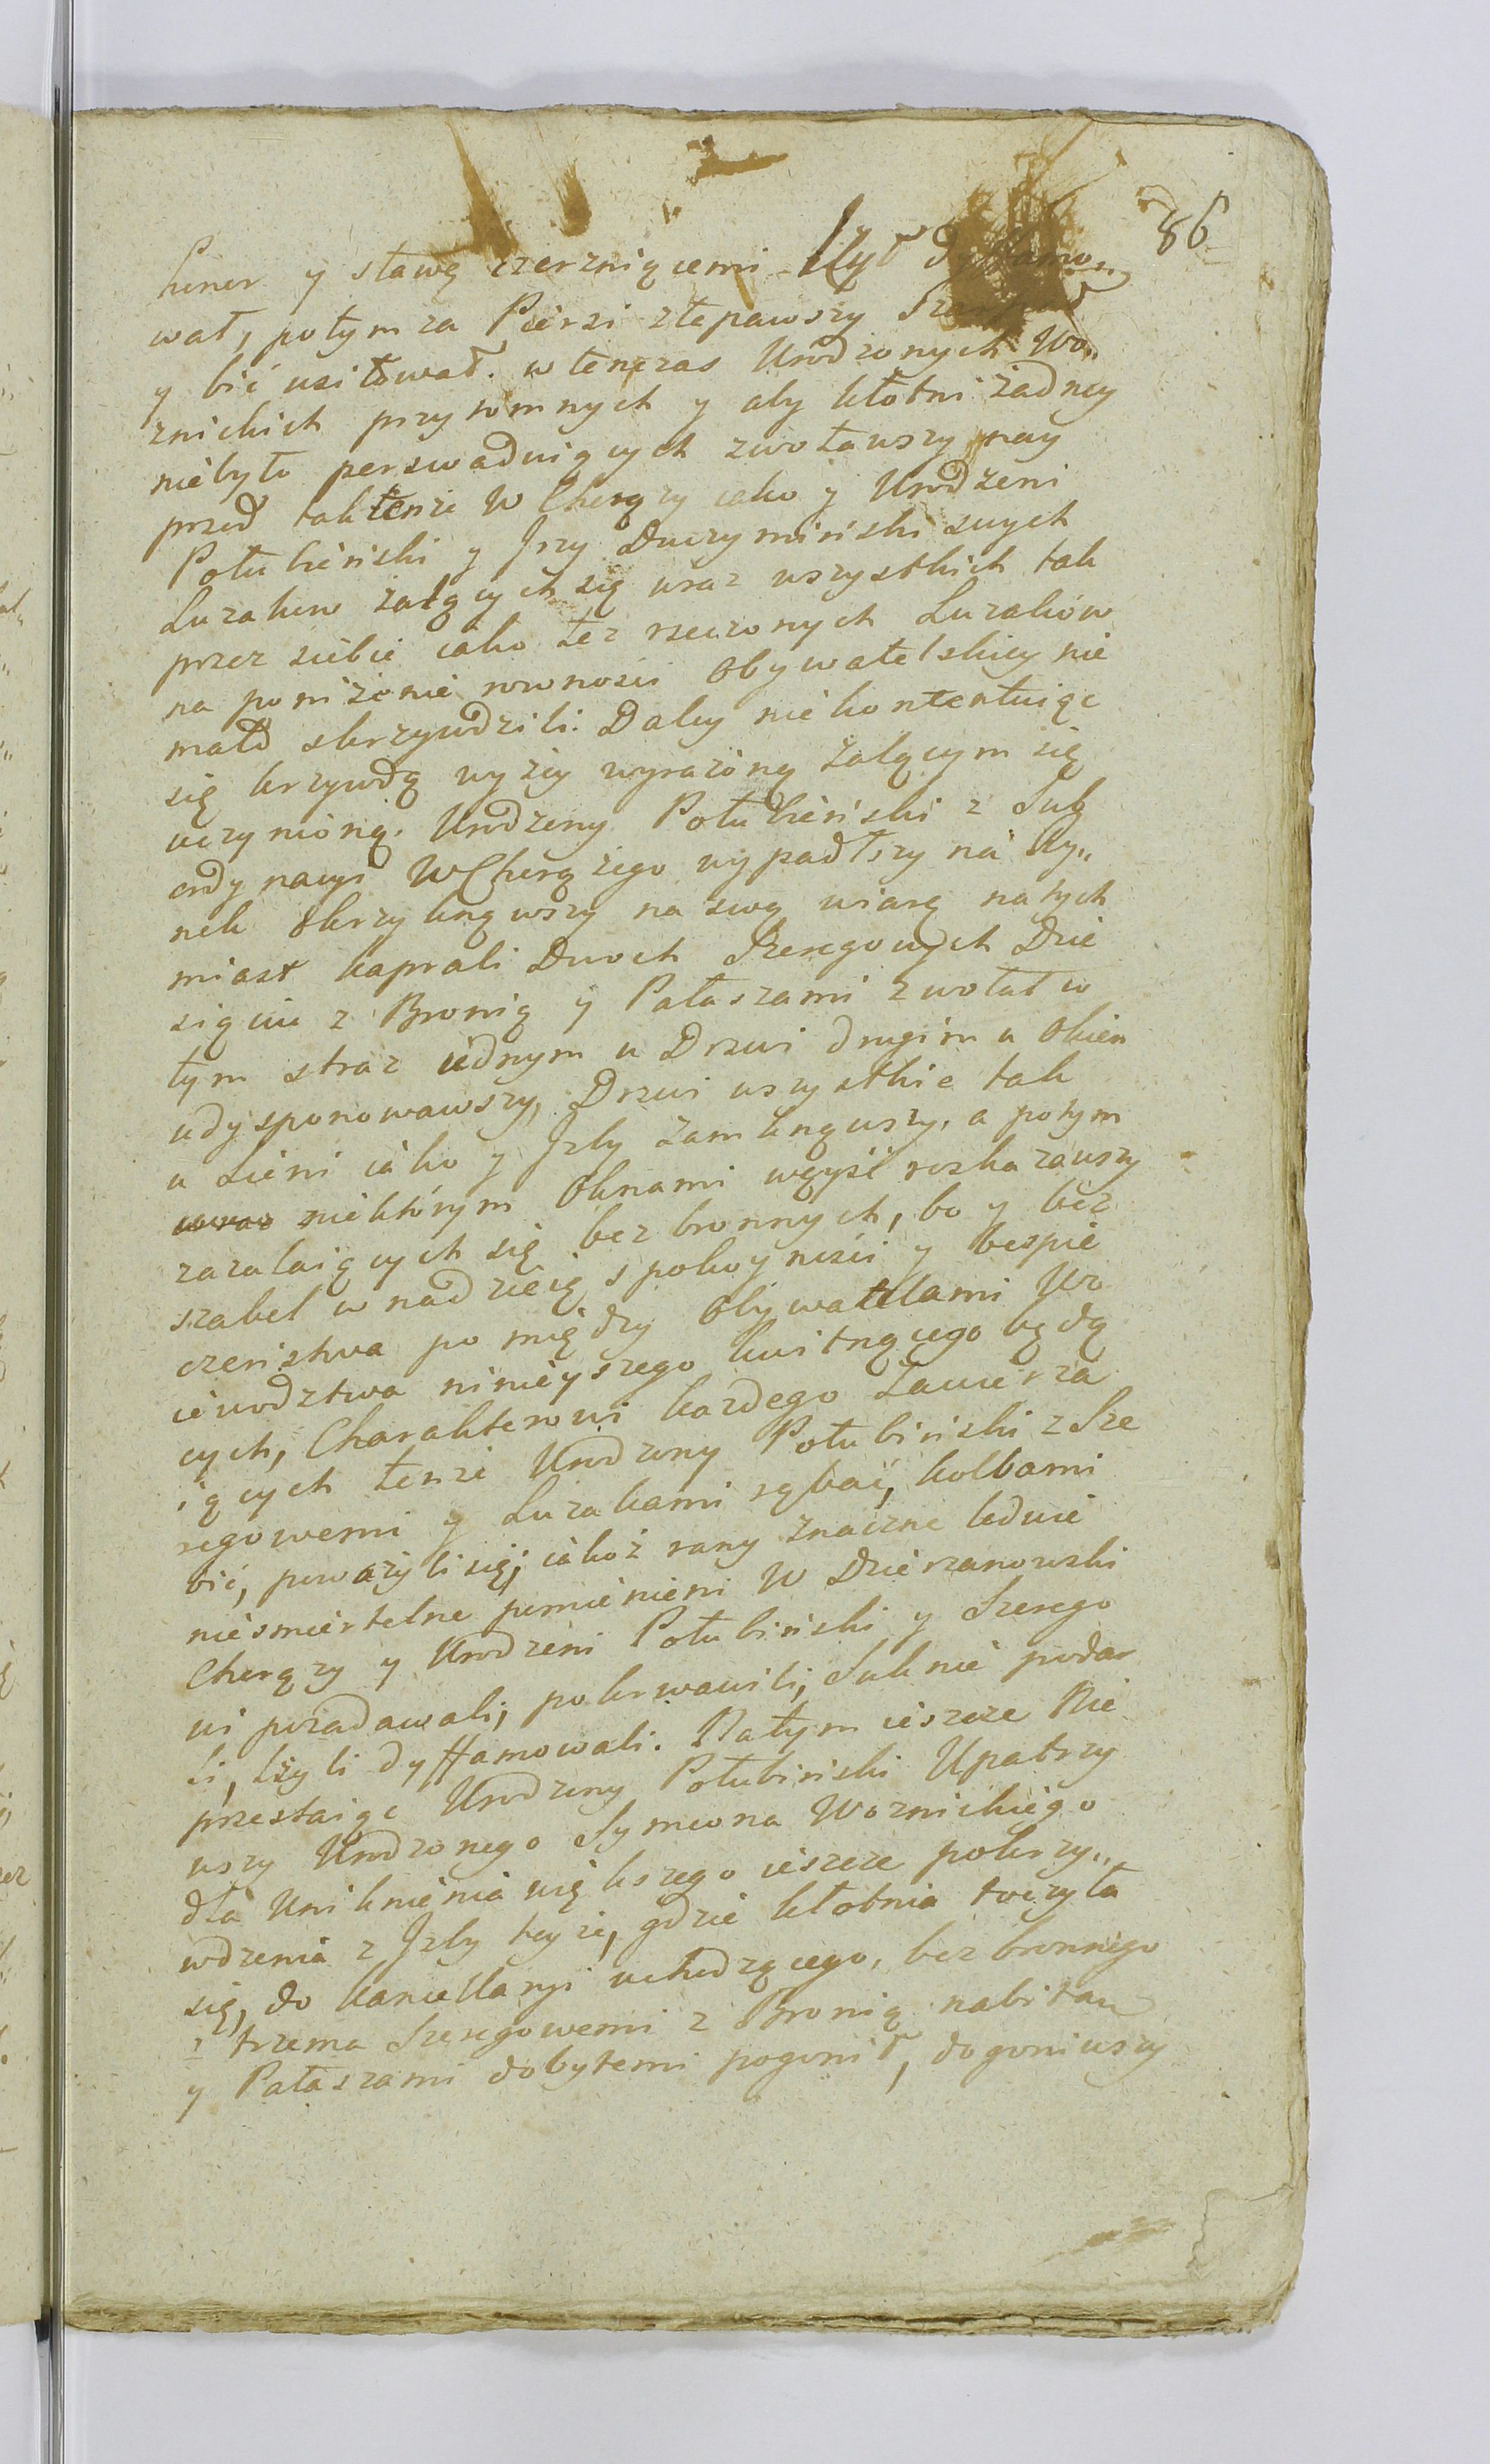 86
honor y sławę czerniącemi lżył dyffamo„
wał, potym za Piersi złapawszy Szarpał
y bić usiłował. w tenczas Urodzonych Wo„
znickich przytomnych y aby kłotni żadney
niebyło perswaduiących zwoławszy nay
przed takżenże W Chorąży iako y Urodzeni
Połubieński y Jrzy Duczymiński swych
Luzakow żalących się wraz wszystkich tak
przez siebie iako też rzeczonych Luzaków
na poniżenie rowności Obywatelskiey nie
mało skrzywdzili. Daley niekontentuiąc
się krzywdą wyżey wyrażoną żalącym się
uczynioną. Urodzony Połubieński z Sub
ordynacyi WChorążego wypadłszy na Ry„
nek Okrzyknąwszy na swą wiarę natych
miast kaprali Dwoch Szeregowych Dzie
sięciu z Bronią y Pałaszami zwołał w
tym straz iednym u Drzwi drugim u Okien
udysponowawszy, Drzwi wszystkie tak
u Sieni iako y Jzby zamknąwszy, a potym
niektórym Oknami węyść rozkazawszy
zazalaiących się bez bronnych, bo y bez
szabel w nadzieię spokoyności y bespie
czeństwa po między Obywatelami Wo
iewodztwa ninieyszego kwitnącego będą
cych, Charakterowi kazdego zawierza
iących tenże Urodzony Połubiński z Sze
regowemi y Luzakami rąbać, kolbami
bić, poważyli się; iakoż rany znaczne ledwie
nieśmiertelne pomienieni W Dzierzanowski
Chorąży y Urodzeni Połubiński y Szerego
wi pozadawali; pokrwawili; Suknie podar
li, lżyli dyffamowali. Natym ieszcze Nie
przestaiąc Urodzony Połubiński Upatrzy
wszy Urodzonego Symeona Woznickiego
dla Uniknienia większego ieszcze pokrzy„
wdzenia z Jzby teyże, gdzie kłotnia toczyła
się, do kancellaryi uchodzącego, bez bronnego
z trzema Szeregowemi z Bronią nabitan
y Pałaszami dobytemi pogonił, dogoniwszy